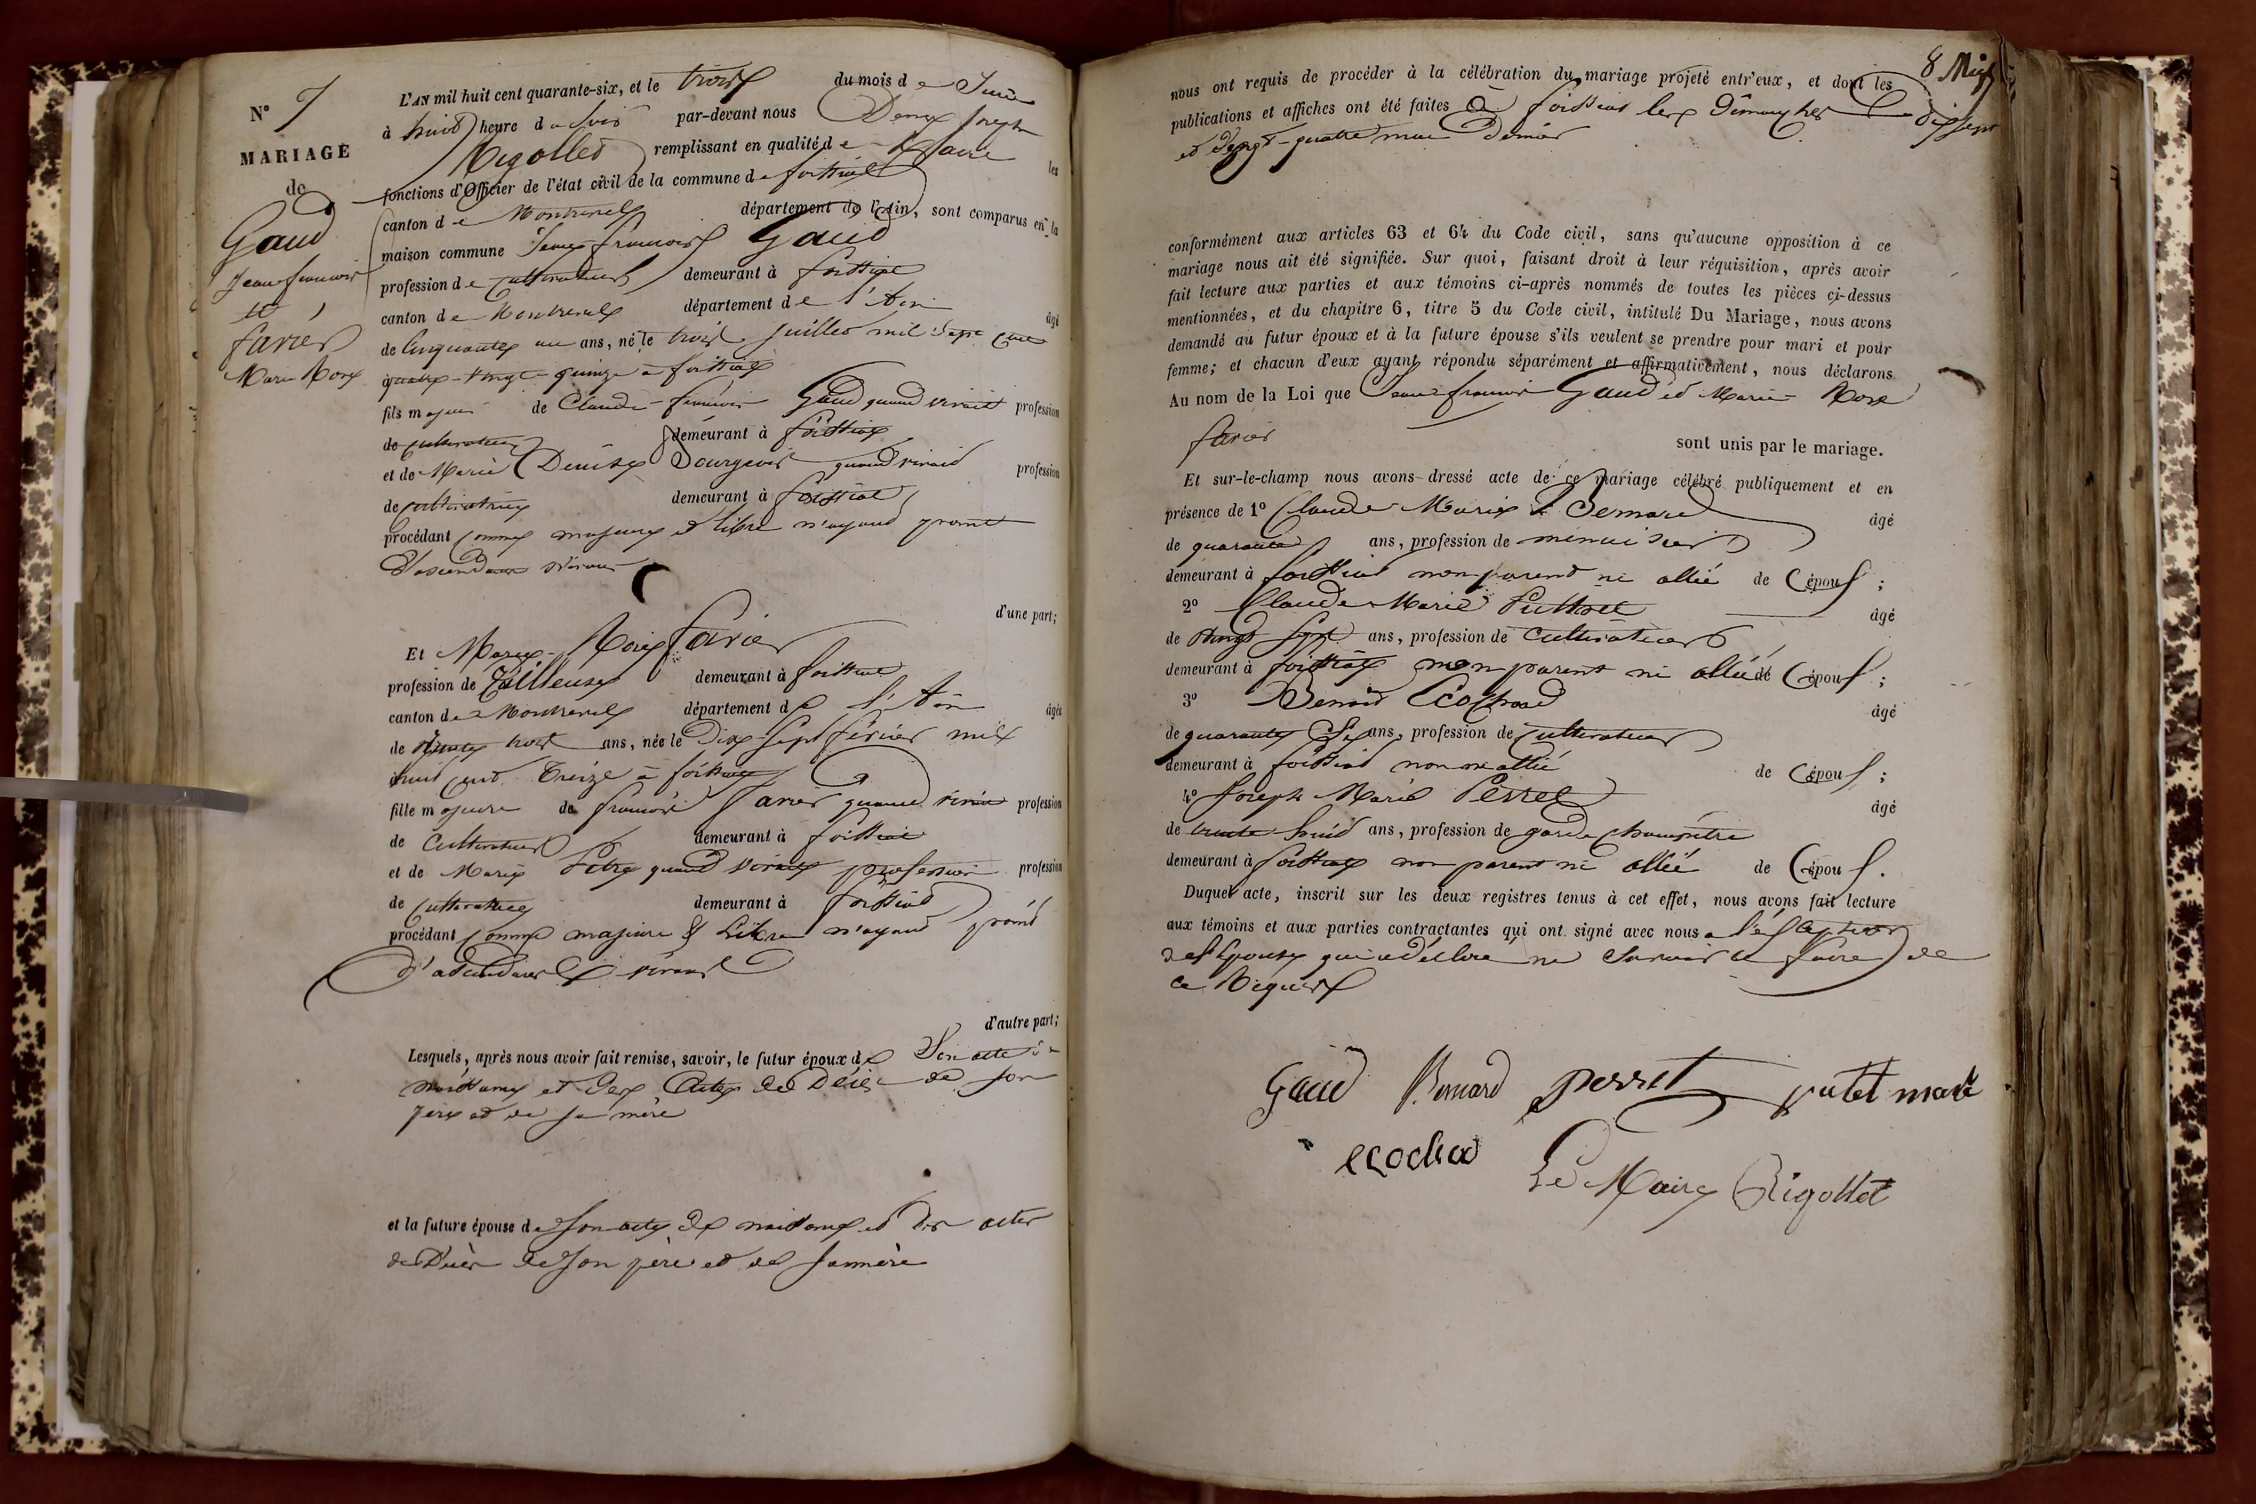 N° 7
MARIAGE
de
Gaud
Jean françois
et
farier
Marie Rose
L'AN mil huit cent quarante-six, et le trois du mois de Juin
à huit heure du soir par-devant nous Denis Joseph
Rigollet remplissant en qualité de Maire les
fonctions d'Officier de l'état civil de la commune de foissiat
canton de Montrevel département de l'Ain, sont comparus en la
maison commune Jean françois Gaud
profession de cultivateur demeurant à foissiat
canton de Montrevel département de l'Ain âgé
de cinquante un ans, né le trois juillet mil sept cent
quatre-vingt-quinze à foissiat
fils majeur de Claude-françois Gaud quand vivait profession
de cultivateur demeurant à foissiat
et de Marie Denise Bourgeois quand vivait profession
de cultivatrice demeurant à foissiat
procédant comme majeur et libre n'ayant point
d'ascendans vivans
d'une part;
Et Marie-Rose farier
profession de tailleuse demeurant à foissiat
canton de Montrevel département de l'Ain âgée
de trente trois ans, née le dix-sept février mil
huit cent treize à foissiat
fille majeure de françois farier quand vivait profession
de cultivateur demeurant à foissiat
et de Marie quand vivait profession profession
de cultivatrice demeurant à foissiat
procédant comme majeure et libre n'ayant point
d'ascendans vivans
d'autre part;
Lesquels, après nous avoir fait remise, savoir, le futur époux de son acte de
naissance et des actes de décès de son
père et de sa mère
et la future épouse de son acte de naissance et des actes
de décès de son père et de sa mère
8 Mise
nous ont requis de procéder à la célébration du mariage projeté entr'eux, et dont les
publications et affiches ont été faites à foissiat les dimanches dix sept
et vingt-quatre mai dernier
conformément aux articles 63 et 64 du Code civil, sans qu'aucune opposition à ce
mariage nous ait été signifiée. Sur quoi, faisant droit à leur réquisition, après avoir
fait lecture aux parties et aux témoins ci-après nommés de toutes les pièces ci-dessus
mentionnées, et du chapitre 6, titre 5 du Code civil, intitulé Du Mariage, nous avons
demandé au futur époux et à la future épouse s'ils veulent se prendre pour mari et pour
femme; et chacun d'eux ayant répondu séparément et affirmativement, nous déclarons
Au nom de la Loi que Jean françois Gaud et Marie Rose
farier
sont unis par le mariage.
Et sur-le-champ nous avons dressé acte de ce mariage célébré publiquement et en
présence de 1° Claude Marie Bernard âgé
de quarante ans, profession de menuisier
demeurant à foissiat non parent ni allié de époux;
2° Claude Marie Puthet âgé
de vingt sept ans, profession de cultivateur
demeurant à foissiat non parent ni allié de époux;
3° Benoit Ecochard âgé
de quarante six ans, profession de cultivateur
demeurant à foissiat non ni allié de époux;
4° Joseph Marie Perret âgé
de trente huit ans, profession de garde champêtre
demeurant à foissiat non parent ni allié de époux.
Duquel acte, inscrit sur les deux registres tenus à cet effet, nous avons fait lecture
aux témoins et aux parties contractantes qui ont signé avec nous a l'exception
de l'épouse qui a déclaré ne savoir le faire de
ce Requis
Gaud Bernard perret putet marie
ecochard
Le Maire Rigollet